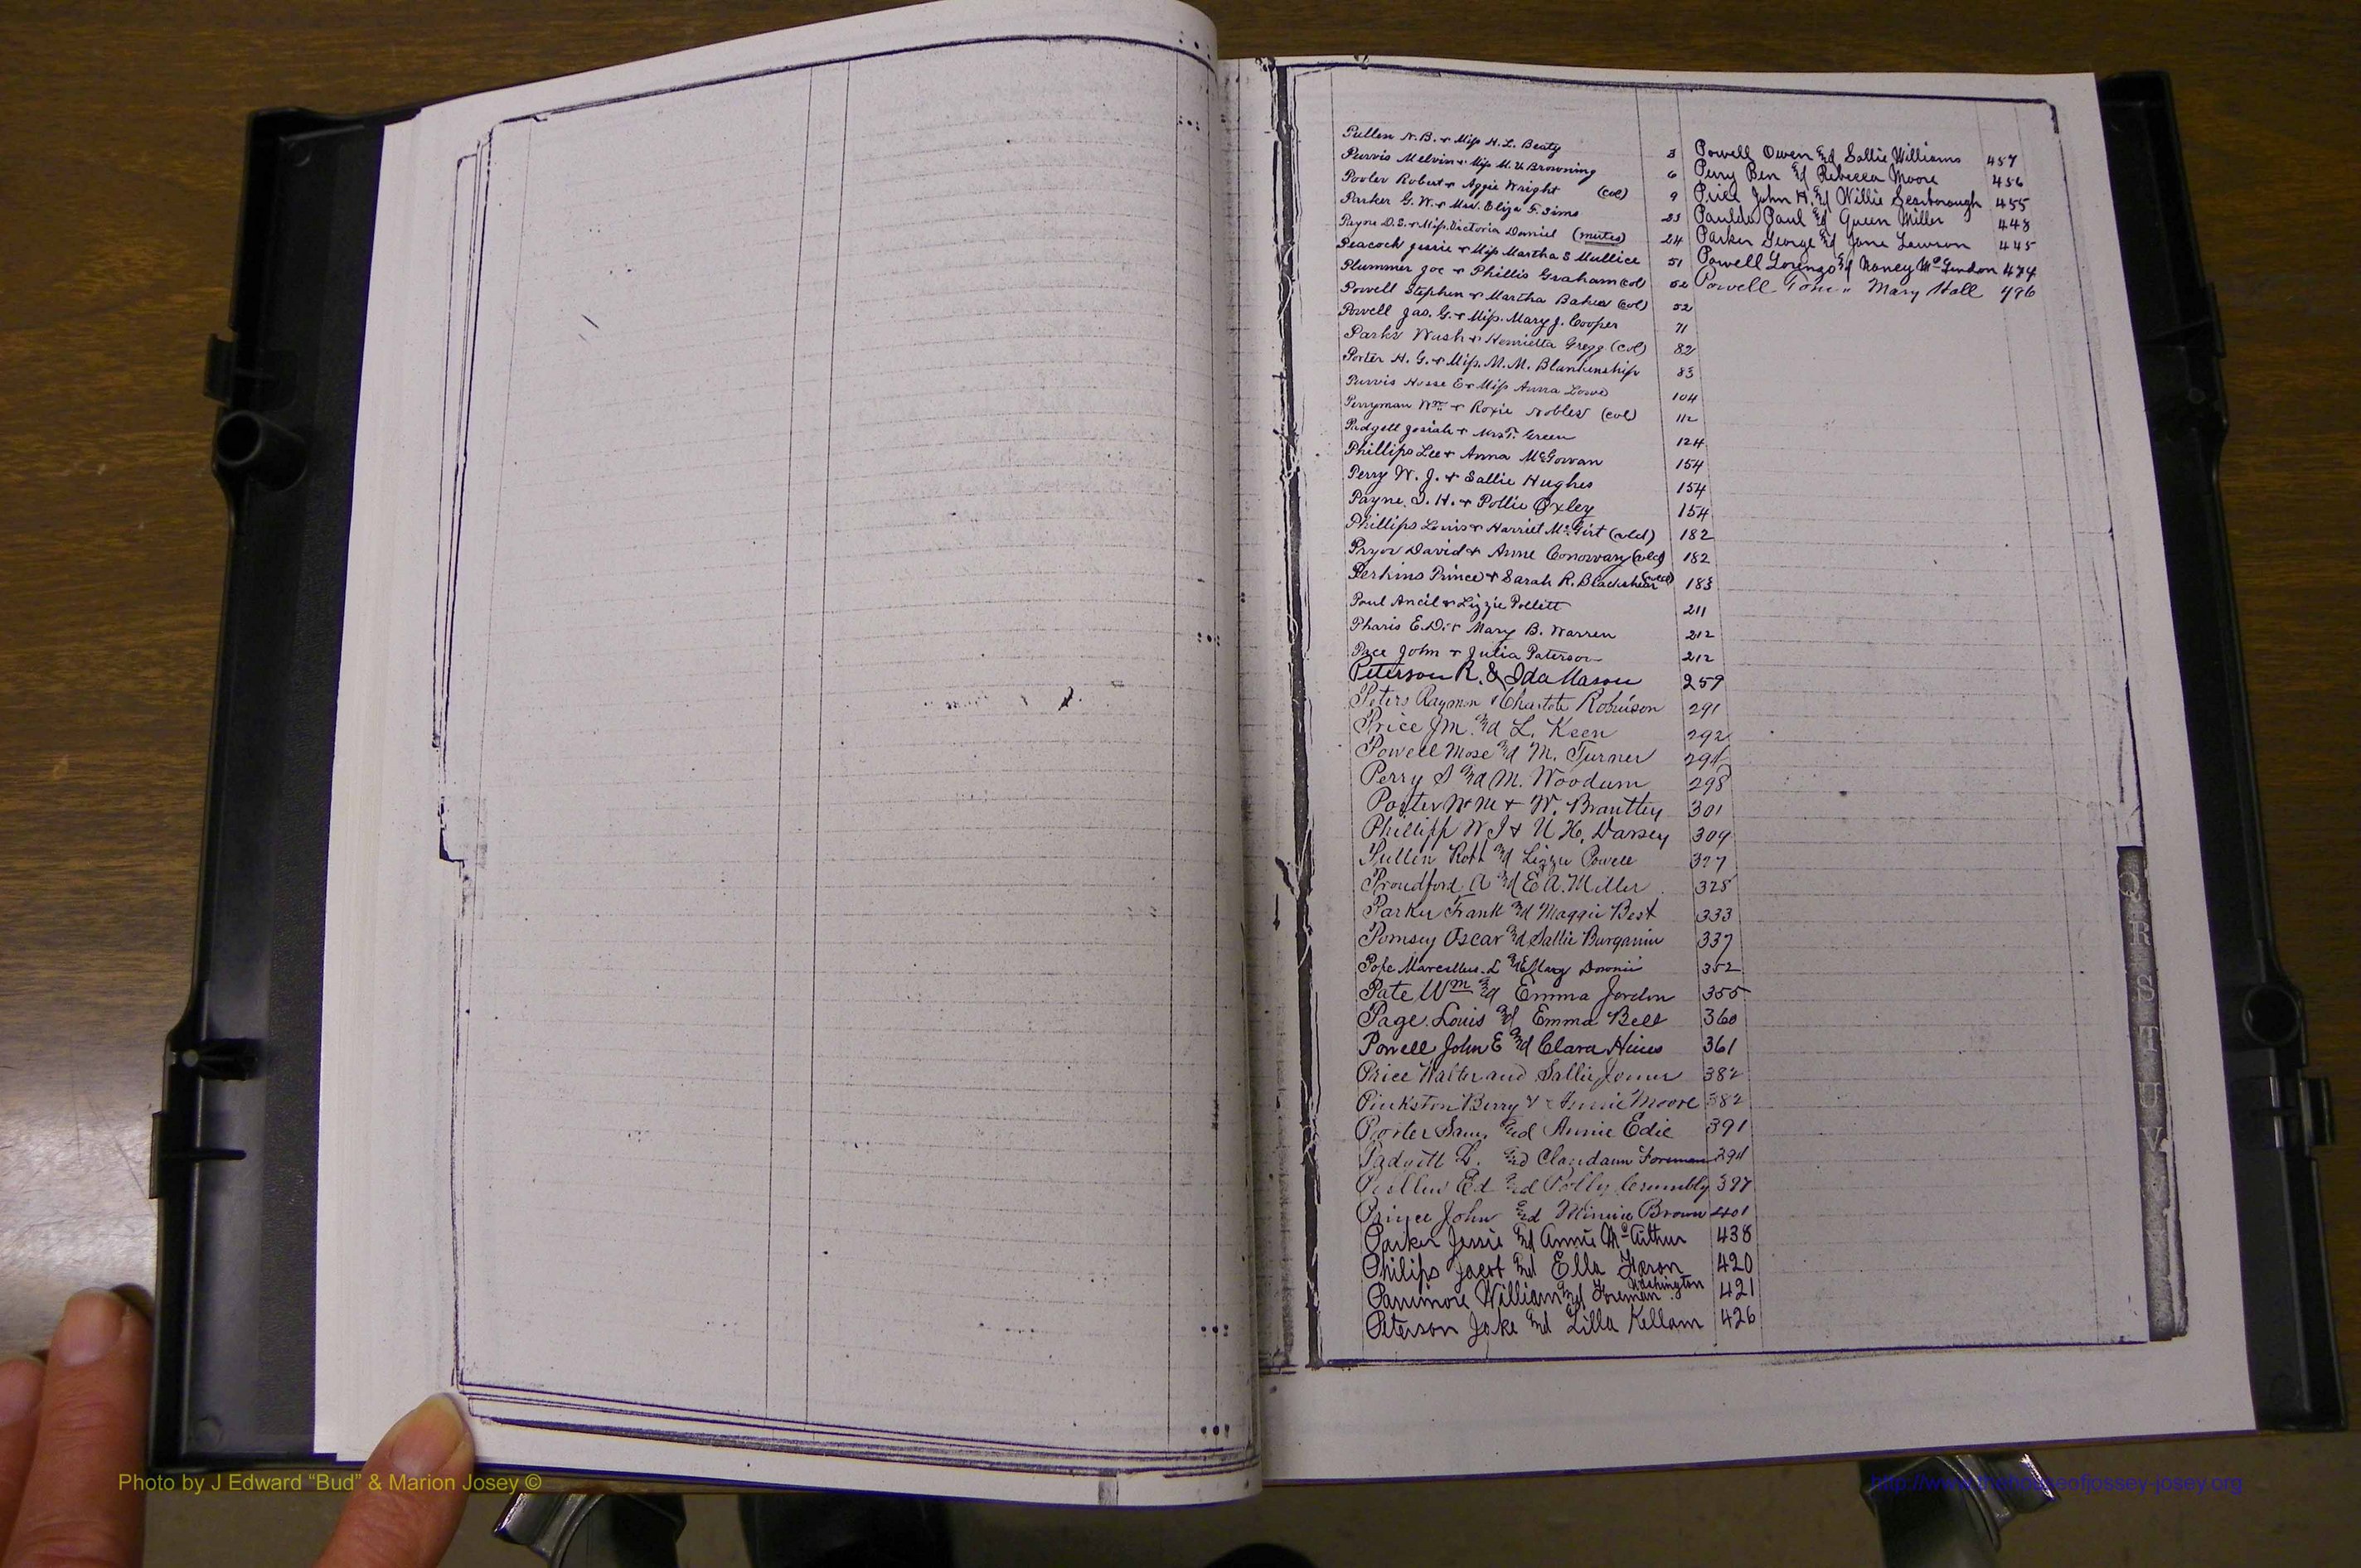 Pullen N. B. & Miss H. L. Beaty 3
Purvis Melvin & Miss M. V. Browning 6
Pooler Robert & Aggie Wright (col) 9
Parker G. W. & Mrs. Eliza F. Sims 23
Payne D. S. & Miss Victoria Daniel (mutes) 24
Peacock Jessie & Miss Martha S Mullice 51
Plummer Joe & Phillis Graham (col) 52
Powell Stephen & Martha Baker (col) 52
Powell Jas. G. & Miss. Mary J. Cooper 71
Parks Wash & Henrietta Gregg (col) 82
Porter H. G. & Miss. M. M. Blankenship 83
Purvis Hosse E & Miss Anna Lowe 104
Perryman Wm & Roxie Nobles (col) 112
Padgett Josiah & Mrs T. Green 124
Phillips Lee & Anna McGowan 154
Perry W. J. & Sallie Hughes 154
Payne H. & Pollie Oxley 154
Phillips Louis & Harriet McGirt (cld) 182
Pryor David & Anne Conoway (cld) 182
Perkins Prince & Sarah R. Blackshear (cld) 183
Paul Ancil & Lizzie Pollett 211
Pharis E. D. & Mary B. Warren 212
Pace John & Julia Paterson 212
Peterson R. & Ida Mason 259
Peters Raymon & Charlotte Robinson 291
Price J M. and L. Keen 292
Powell Mose and M. Turner 294
Perry S and M. Woodum 298
Porter Wm & W. Brantley 301
Phillips W J & U H. Darsey 309
Pullin Robt and Lizzie Powell 327
Proudford A and E A. Miller 328
Parker Frank and Maggie Best 333
Pomsey Oscar and Sallie Burgamin 337
Pope Marcellus L and Mary Downie 352
Pate Wm and Emma Jordon 355
Page Louis and Emma Bell 360
Powell John E and Clara Hines 361
Price Walter and Sallie Joiner 382
Pinkston Berry & Annie Moore 382
Porter Sam. and Annie Edie 391
Padgett L. and Foreman 394
Ed and Polly Crumbly 397
Prince John and Minnie Brown 401
Parker Jessie and Annie McArthur 438
Philips Jacob and Ella Heron 420
Parrimore William and Foreman Washington 421
Peterson Jake and Lilla Kellam 426
Powell Owen and Sallie Williams 457
Perry Ben and Rebecca Moore 456
Price John H. and Willie Scarborough 455
Paulda Paul and Queen Miller 448
Parker George and Jane Lawson 445
Powell Lorenzo and Nancy McLendon 474
Powell Tom " Mary Hall 496
Q
R
S
T
U
V
Photo by J Edward “Bud” & Marion Josey ©
http://www.thehouseofjossey-josey.org